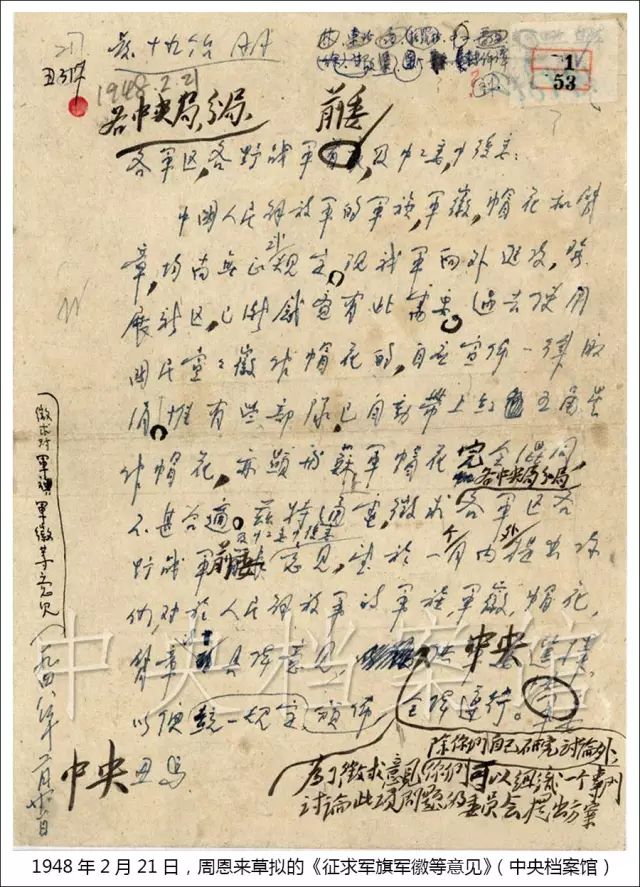 1948.2.21
1
53
各中央局,分局,前委
各军区,各野战军
中国人民解放军的军旗,军徽,帽花和臂
章,均尚无正式规定。现我军向外进攻,发
展新区,已渐感宣布此需要。过去使用
国民党党徽作帽花的,自应宣佈一律取
消。惟有些部队已自动带上红五角星
作帽花,亦显和苏军帽花完全混同
各中央局分局
不甚合适。兹特通电徵求各军区各
野战军前委意见,望於一个月内提出你
们对於人民解放军的军旗,军徽,帽花,
臂章具体意见,中央
以便统一规定,颁佈全体遵行。
中央丑马
除你们自己研究讨论外
为了徵求意见你们可以组织一个专门
讨论此项问题的委员会提出方案
徵求对军旗军徽等意见
一九四八年二月廿一日
中央档案馆
1948年2月21日，周恩来草拟的《征求军旗军徽等意见》（中央档案馆）